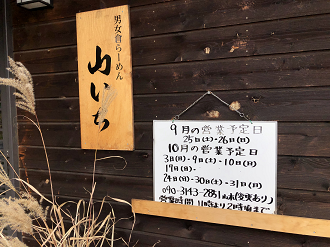 男女倉らーめん
山いち
9月の営業予定日
25日(土)-26日(日)
10月の営業予定日
3日(日)-9日(土)-10日(日)
17日(日)-
24日(日)-30日(土)-31日(日)
090-3143-2851
営業時間 11時より2時頃まで